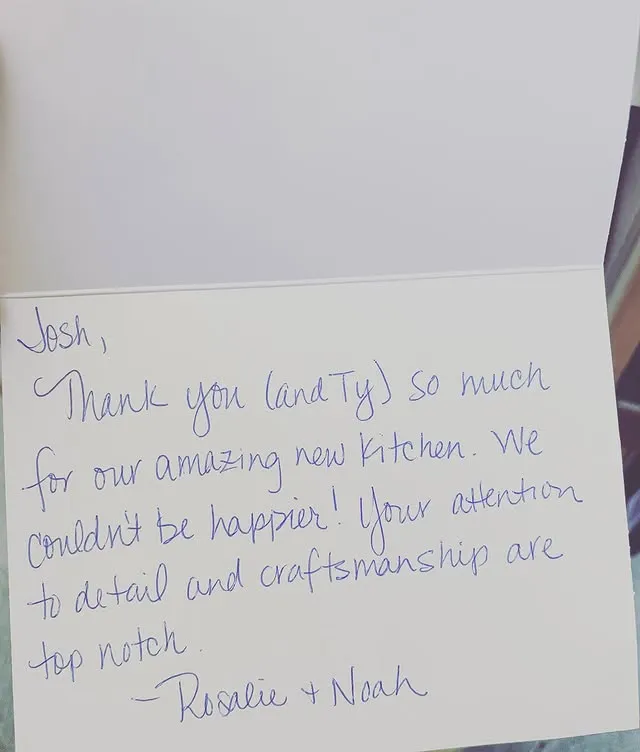 Josh,
Thank you (and Ty) so much
for our amazing new kitchen. We
couldn't be happier! Your attention
to detail and craftsmanship are
top notch.
- Rosalie + Noah